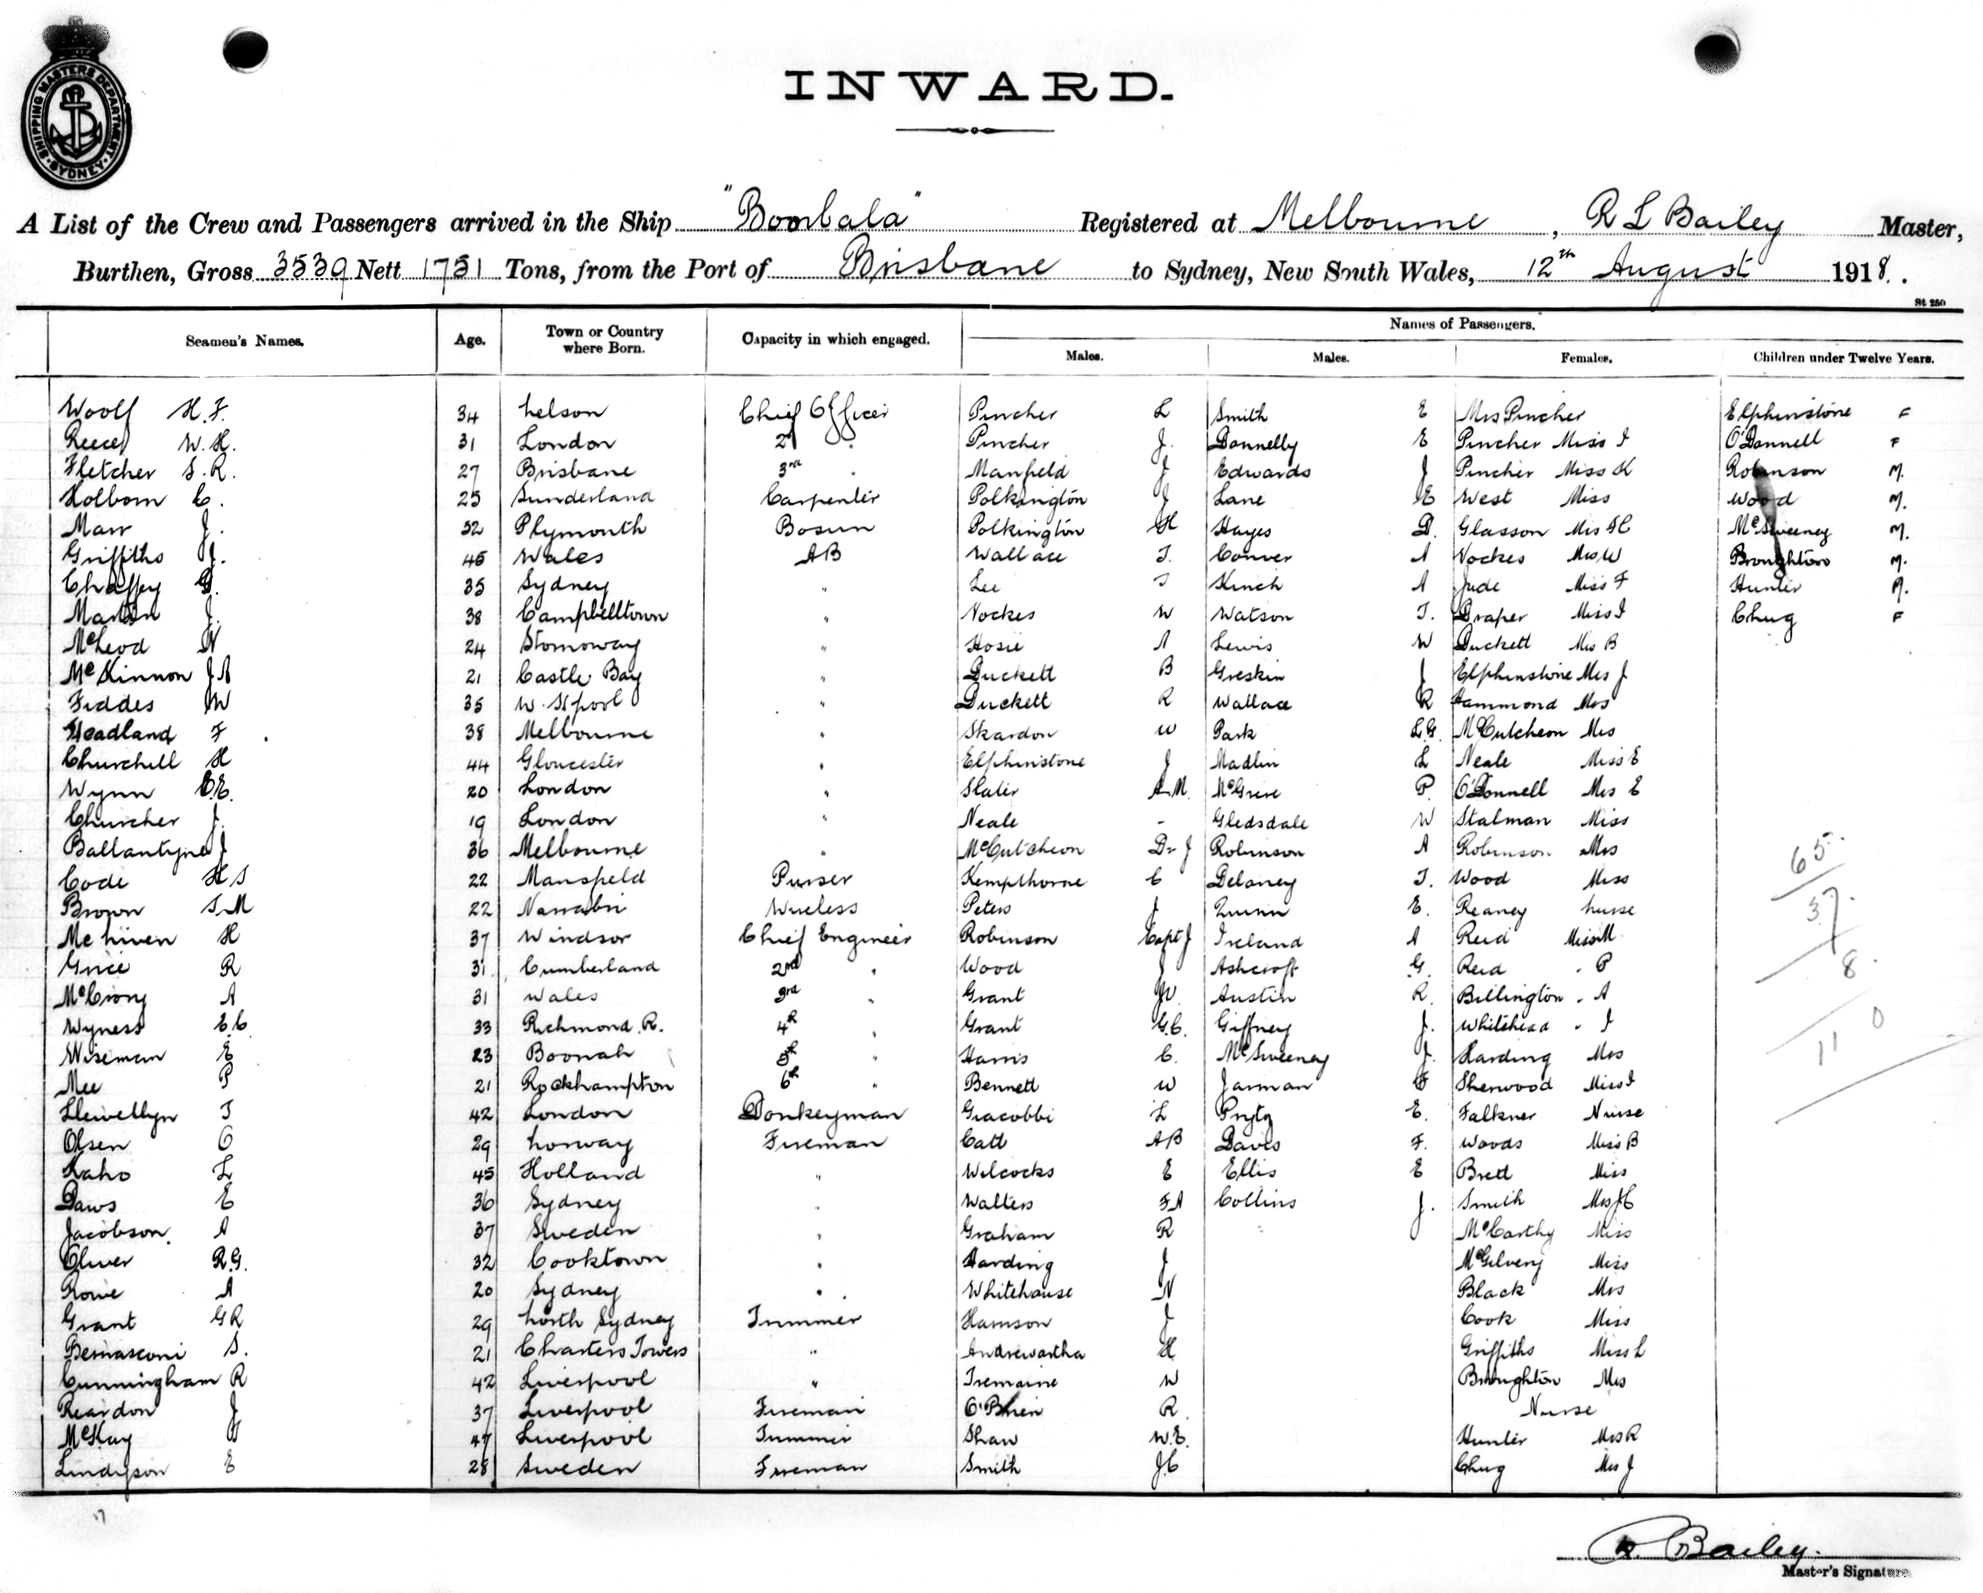 SHIPPING MASTERS DEPARTMENT · SYDNEY ·
INWARD.
A List of the Crew and Passengers arrived in the Ship "Bombala" Registered at Melbourne, R L Bailey Master,
Burthen, Gross 3539 Nett 1751 Tons, from the Port of Brisbane to Sydney, New South Wales, 12th August 1918.
St 250
Names of Passengers.
Seamen's Names. Age. Town or Country where Born. Capacity in which engaged. Males. Males. Females. Children under Twelve Years.
Woolf H.F. 34 Nelson Chief Officer Pincher L Smith E Mrs Pincher Elphinstone F
Reece W.H. 31 London 2nd " Pincher J. Donnelly E Pincher Miss I O'Donnell F
Fletcher S.R. 27 Brisbane 3rd " Manfield J Edwards J Pincher Miss K Robinson M.
Holborn C. 25 Sunderland Carpenter Polkington J Lane E West Miss Wood M.
Marr J. 52 Plymouth Bosun Polkington H Hayes D. Glasson Mrs H McSweeney M.
Griffiths J. 45 Wales AB Wallace T. Conver A Nockes Mrs W Broughton M.
Chaffey G. 35 Sydney " Lee J Kinch A Jude Miss F Hunter M.
Martin J. 38 Campbelltown " Nockes W Watson T. Draper Miss I Chug F
McLeod N 24 Stornoway " Hosie A Lewis W Duckett Mrs B
McKinnon J A 21 Castle Bay " Duckett B Greskin J Elphinstone Mrs J
Fiddes W 35 W. H'pool " Duckett R Wallace R Hammond Mrs
Headland F 38 Melbourne " Skardon W Park L.G. McCutcheon Mrs
Churchill H 44 Gloucester " Elphinstone J Madlin L Neale Miss E
Wynn C.E. 20 London " Slater A.M. McGrice P. O'Donnell Mrs E
Churcher J. 19 London " Neale - Gledsdale W Stalman Miss
Ballantyne J 36 Melbourne " McCutcheon Dr J Robinson A Robinson Mrs
Code H S 22 Mansfield Purser Kempthorne C Delaney T. Wood Miss
Brown S.M 22 Narrabri Wireless Peters J Quinn E. Reaney Nurse
McNiven H 37 Windsor Chief Engineer Robinson Capt J Ireland A Reid Miss M
Grice R 31 Cumberland 2nd " Wood J Ashcroft G. Reid " P
McCrory A 31 Wales 3rd " Grant W. Austin R. Billington " A
Wyness E.C. 33 Richmond R. 4th " Grant G.C. Giffney J. Whitehead " I
Wiseman E 23 Boonah 5th " Harris C. McSweeney J. Harding Mrs
Mee P 21 Rockhampton 6th " Bennett W Jarman F Sherwood Miss I
Llewellyn T 42 London Donkeyman Giacobbi L E. Falkner Nurse
Olsen O 29 Norway Fireman Catt AB Davis F. Woods Miss B
Kaho L 45 Holland " Wilcocks E Ellis E Brett Miss
Daws E 36 Sydney " Walters F A Collins J. Smith Mrs J C
Jacobson A 37 Sweden " Graham R McCarthy Miss
Oliver R.G. 32 Cooktown " Harding J McGilvery Miss
Rowe A 20 Sydney " Whitehouse N Black Mrs
Grant G R 29 North Sydney Trimmer Hamson J Cook Miss
Bernasconi S. 21 Charters Towers " Andrewartha H Griffiths Miss L
Cunningham R 42 Liverpool " Tremaine W Broughton Mrs
Reardon J 37 Liverpool Fireman O'Brien R. Nurse
McKay W 47 Liverpool Trimmer Shaw W.E. Hunter Mrs R
E 28 Sweden Fireman Smith J.C Chug Mrs J
65
37
8
110
R. Bailey.
Master's Signature